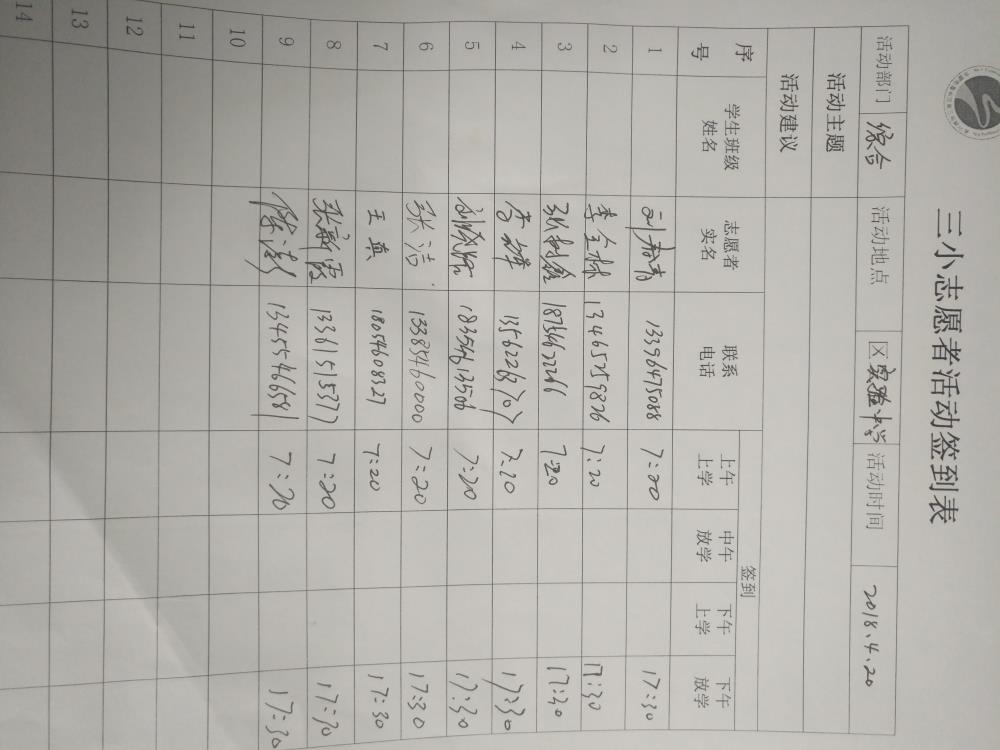 三小志愿者活动签到表
活动部门 综合 活动地点 区实验中学 活动时间 2018.4.20
活动主题
活动建议
序号 学生班级姓名 志愿者实名 联系电话 签到
上午上学 中午放学 下午上学 下午放学
1 13396475088 7:20 17:30
2 李全林 13465259826 7:20 17:30
3 18736622266 7:20 17:30
4 7:20 17:30
5 18356613506 7:20 17:30
6 张洁 13385460000 7:20 17:30
7 王真 18054608327 7:20 17:30
8 张新霞 13361515377 7:20 17:30
9 13455466581 7:20 17:30
10
11
12
13
14